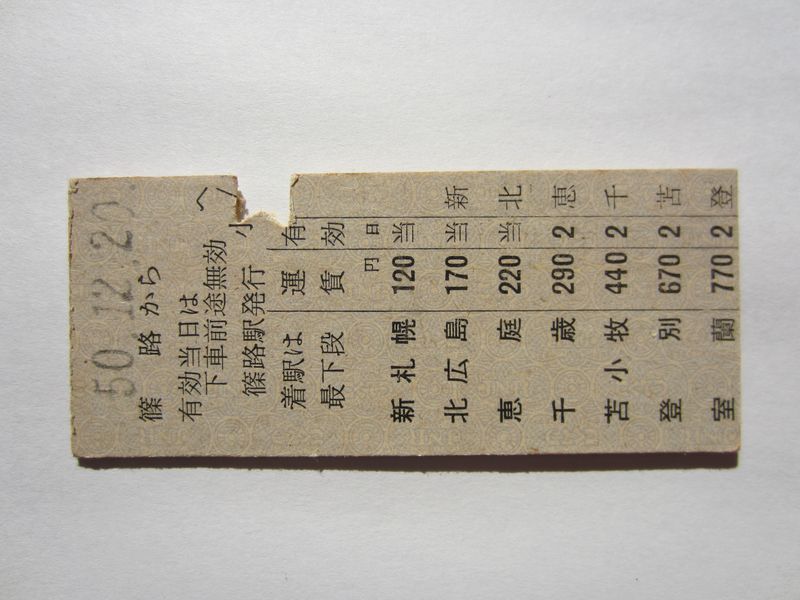 50.12.20.
篠路から
有効当日は
へ
下車前途無効
小
篠路駅発行
着駅は 運 有
最下段 賃 効
円 日
新札幌 120 当
北広島 170 当 新
恵庭 220 当 北
千歳 290 2 恵
苫小牧 440 2 千
登別 670 2 苫
室蘭 770 2 登